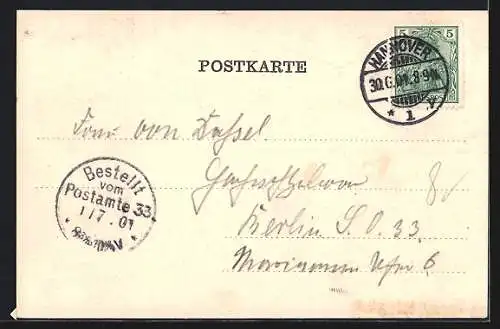 5 5
HANNOVER
30.6.01. 8-9N.
* 1 *
POSTKARTE
Frau von Dassel
Berlin S.O. 33.
Ufer 6.
Bestellt
vom
Postamte 33
1/7.01